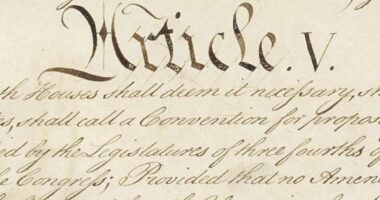 Article. V.
Houses shall deem it necessary,
shall call a Convention for
by the Legislatures of three fourths of
Congress; Provided that no